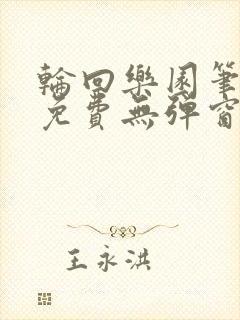 輪回樂園筆
免費無彈窗
王永洪